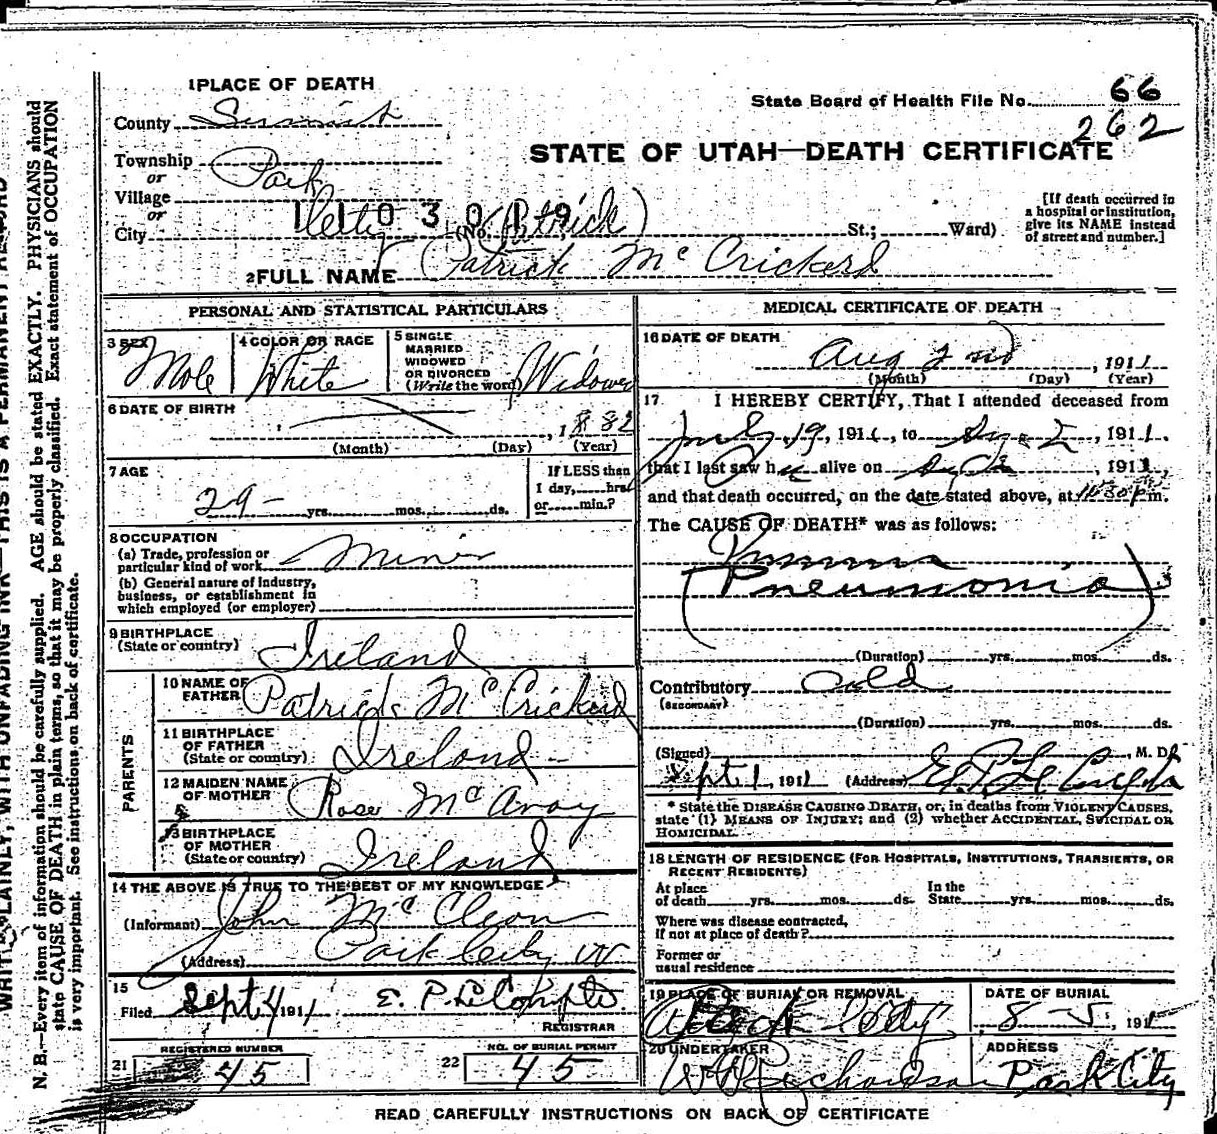 1 PLACE OF DEATH
State Board of Health File No. 66
262
County Summit
STATE OF UTAH—DEATH CERTIFICATE
Township Park
or
Village
or
City City
1 1 0 3 0 1 9
(No. (Patrick) St.; Ward)
[If death occurred in
a hospital or institution,
give its NAME instead
of street and number.]
2 FULL NAME Patrick McCrickerd
PERSONAL AND STATISTICAL PARTICULARS
3 SEX Male
4 COLOR OR RACE White
5 SINGLE
MARRIED
WIDOWED
OR DIVORCED
(Write the word) Widower
6 DATE OF BIRTH
, 1882
(Month) (Day) (Year)
7 AGE
29 yrs. mos. ds.
If LESS than
1 day, hrs.
or min.?
8 OCCUPATION
(a) Trade, profession or
particular kind of work Miner
(b) General nature of Industry,
business, or establishment in
which employed (or employer)
9 BIRTHPLACE
(State or country) Ireland
PARENTS
10 NAME OF
FATHER Patrick McCrickerd
11 BIRTHPLACE
OF FATHER
(State or country) Ireland
12 MAIDEN NAME
OF MOTHER Rose McAvoy
13 BIRTHPLACE
OF MOTHER
(State or country) Ireland
14 THE ABOVE IS TRUE TO THE BEST OF MY KNOWLEDGE
(Informant) John McClean
(Address) Park City
15
Filed Sept 4 1911 E. P. LeCompte
REGISTRAR
21 REGISTERED NUMBER
45
22 NO. OF BURIAL PERMIT
45
MEDICAL CERTIFICATE OF DEATH
16 DATE OF DEATH
Aug 2nd , 1911
(Month) (Day) (Year)
17 I HEREBY CERTIFY, That I attended deceased from
July 19, 1911, to Aug 2, 1911.
that I last saw h alive on , 1911,
and that death occurred, on the date stated above, at 11:30 p m.
The CAUSE OF DEATH* was as follows:
Pneumonia
(Pneumonia)
(Duration) yrs. mos. ds.
Contributory Cold
(SECONDARY)
(Duration) yrs. mos. ds.
(Signed) E. P. LeCompte, M. D.
Sept 1, 1911 (Address)
* State the DISEASE CAUSING DEATH, or, in deaths from VIOLENT CAUSES,
state (1) MEANS OF INJURY; and (2) whether ACCIDENTAL, SUICIDAL OR
HOMICIDAL.
18 LENGTH OF RESIDENCE (FOR HOSPITALS, INSTITUTIONS, TRANSIENTS, OR
RECENT RESIDENTS)
At place
of death yrs. mos. ds.
In the
State yrs. mos. ds.
Where was disease contracted,
If not at place of death?
Former or
usual residence
19 PLACE OF BURIAL OR REMOVAL
Park City
DATE OF BURIAL
8-5-, 191
20 UNDERTAKER
W Richardson
ADDRESS
Park City
READ CAREFULLY INSTRUCTIONS ON BACK OF CERTIFICATE
WRITE PLAINLY, WITH UNFADING INK—THIS IS A PERMANENT RECORD
N. B.—Every item of information should be carefully supplied. AGE should be stated EXACTLY. PHYSICIANS should
state CAUSE OF DEATH in plain terms, so that it may be properly classified. Exact statement of OCCUPATION
is very important. See instructions on back of certificate.